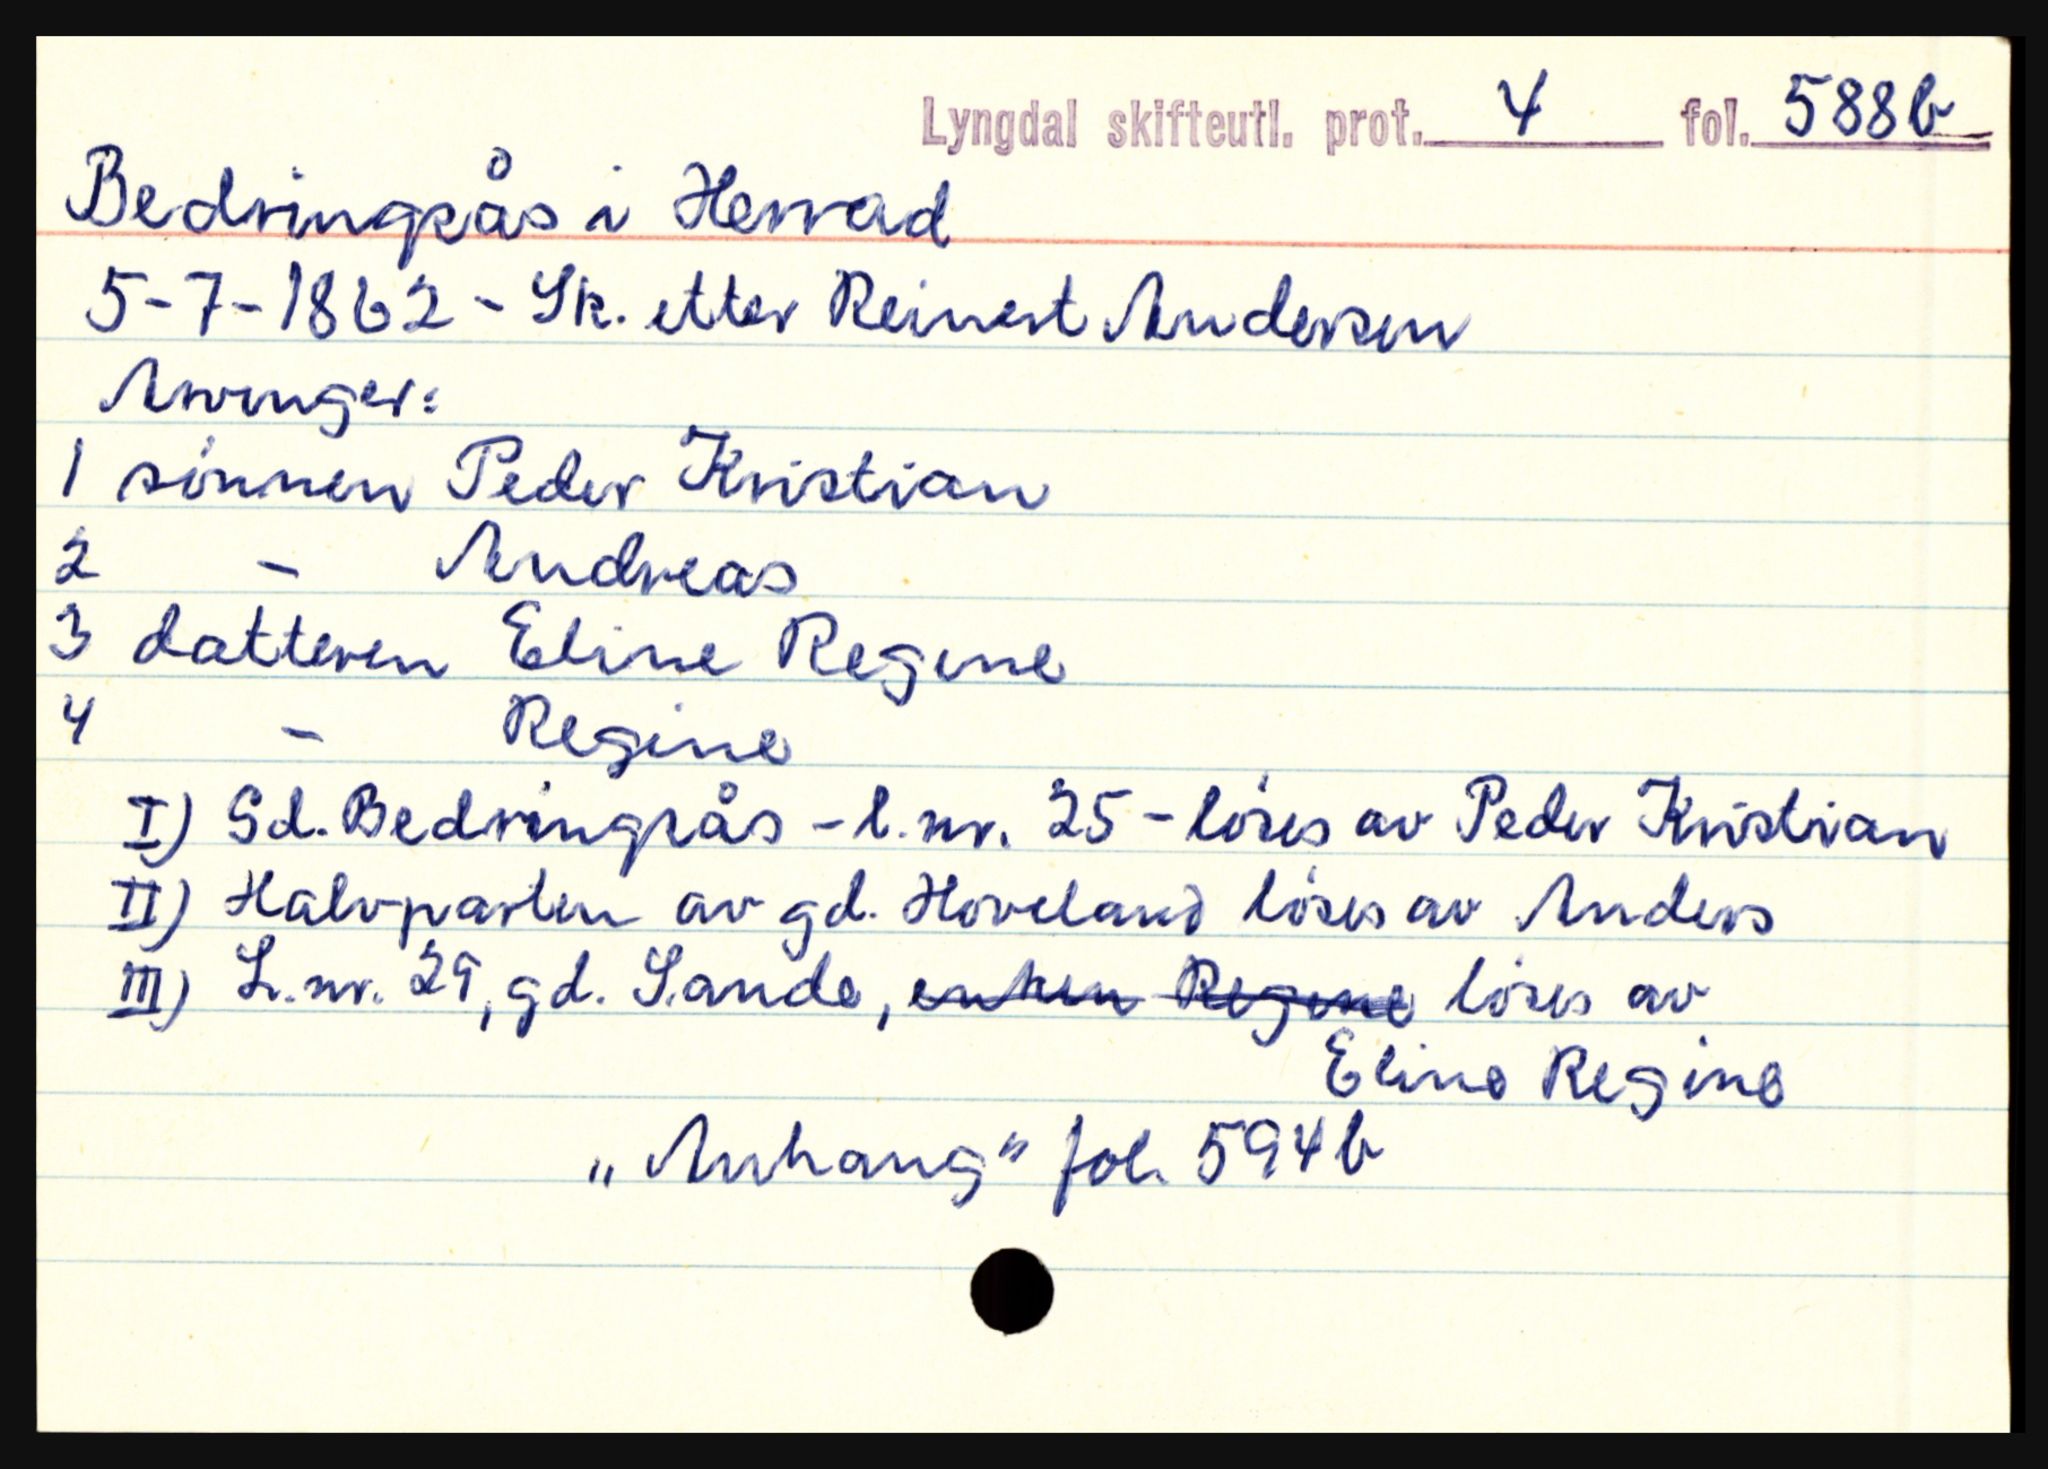 Lyngdal skifteutl. prot. 4 fol. 588b
Bedringsås i Herrad
5-7-1862 - Sk. etter Reinert Andersen
Arvinger:
1 sönnen Peder Kristian
2 - Andreas
3 datteren Eline Regine
4 - Regine
I) Gd. Bedringsås - l.nr. 25 - löses av Peder Kristian
II) Halvparten av gd. Hoveland löses av Anders
III) L.nr. 29, gd. Sande, enken Regine löses av
Eline Regine
„Anhang" fol. 594b